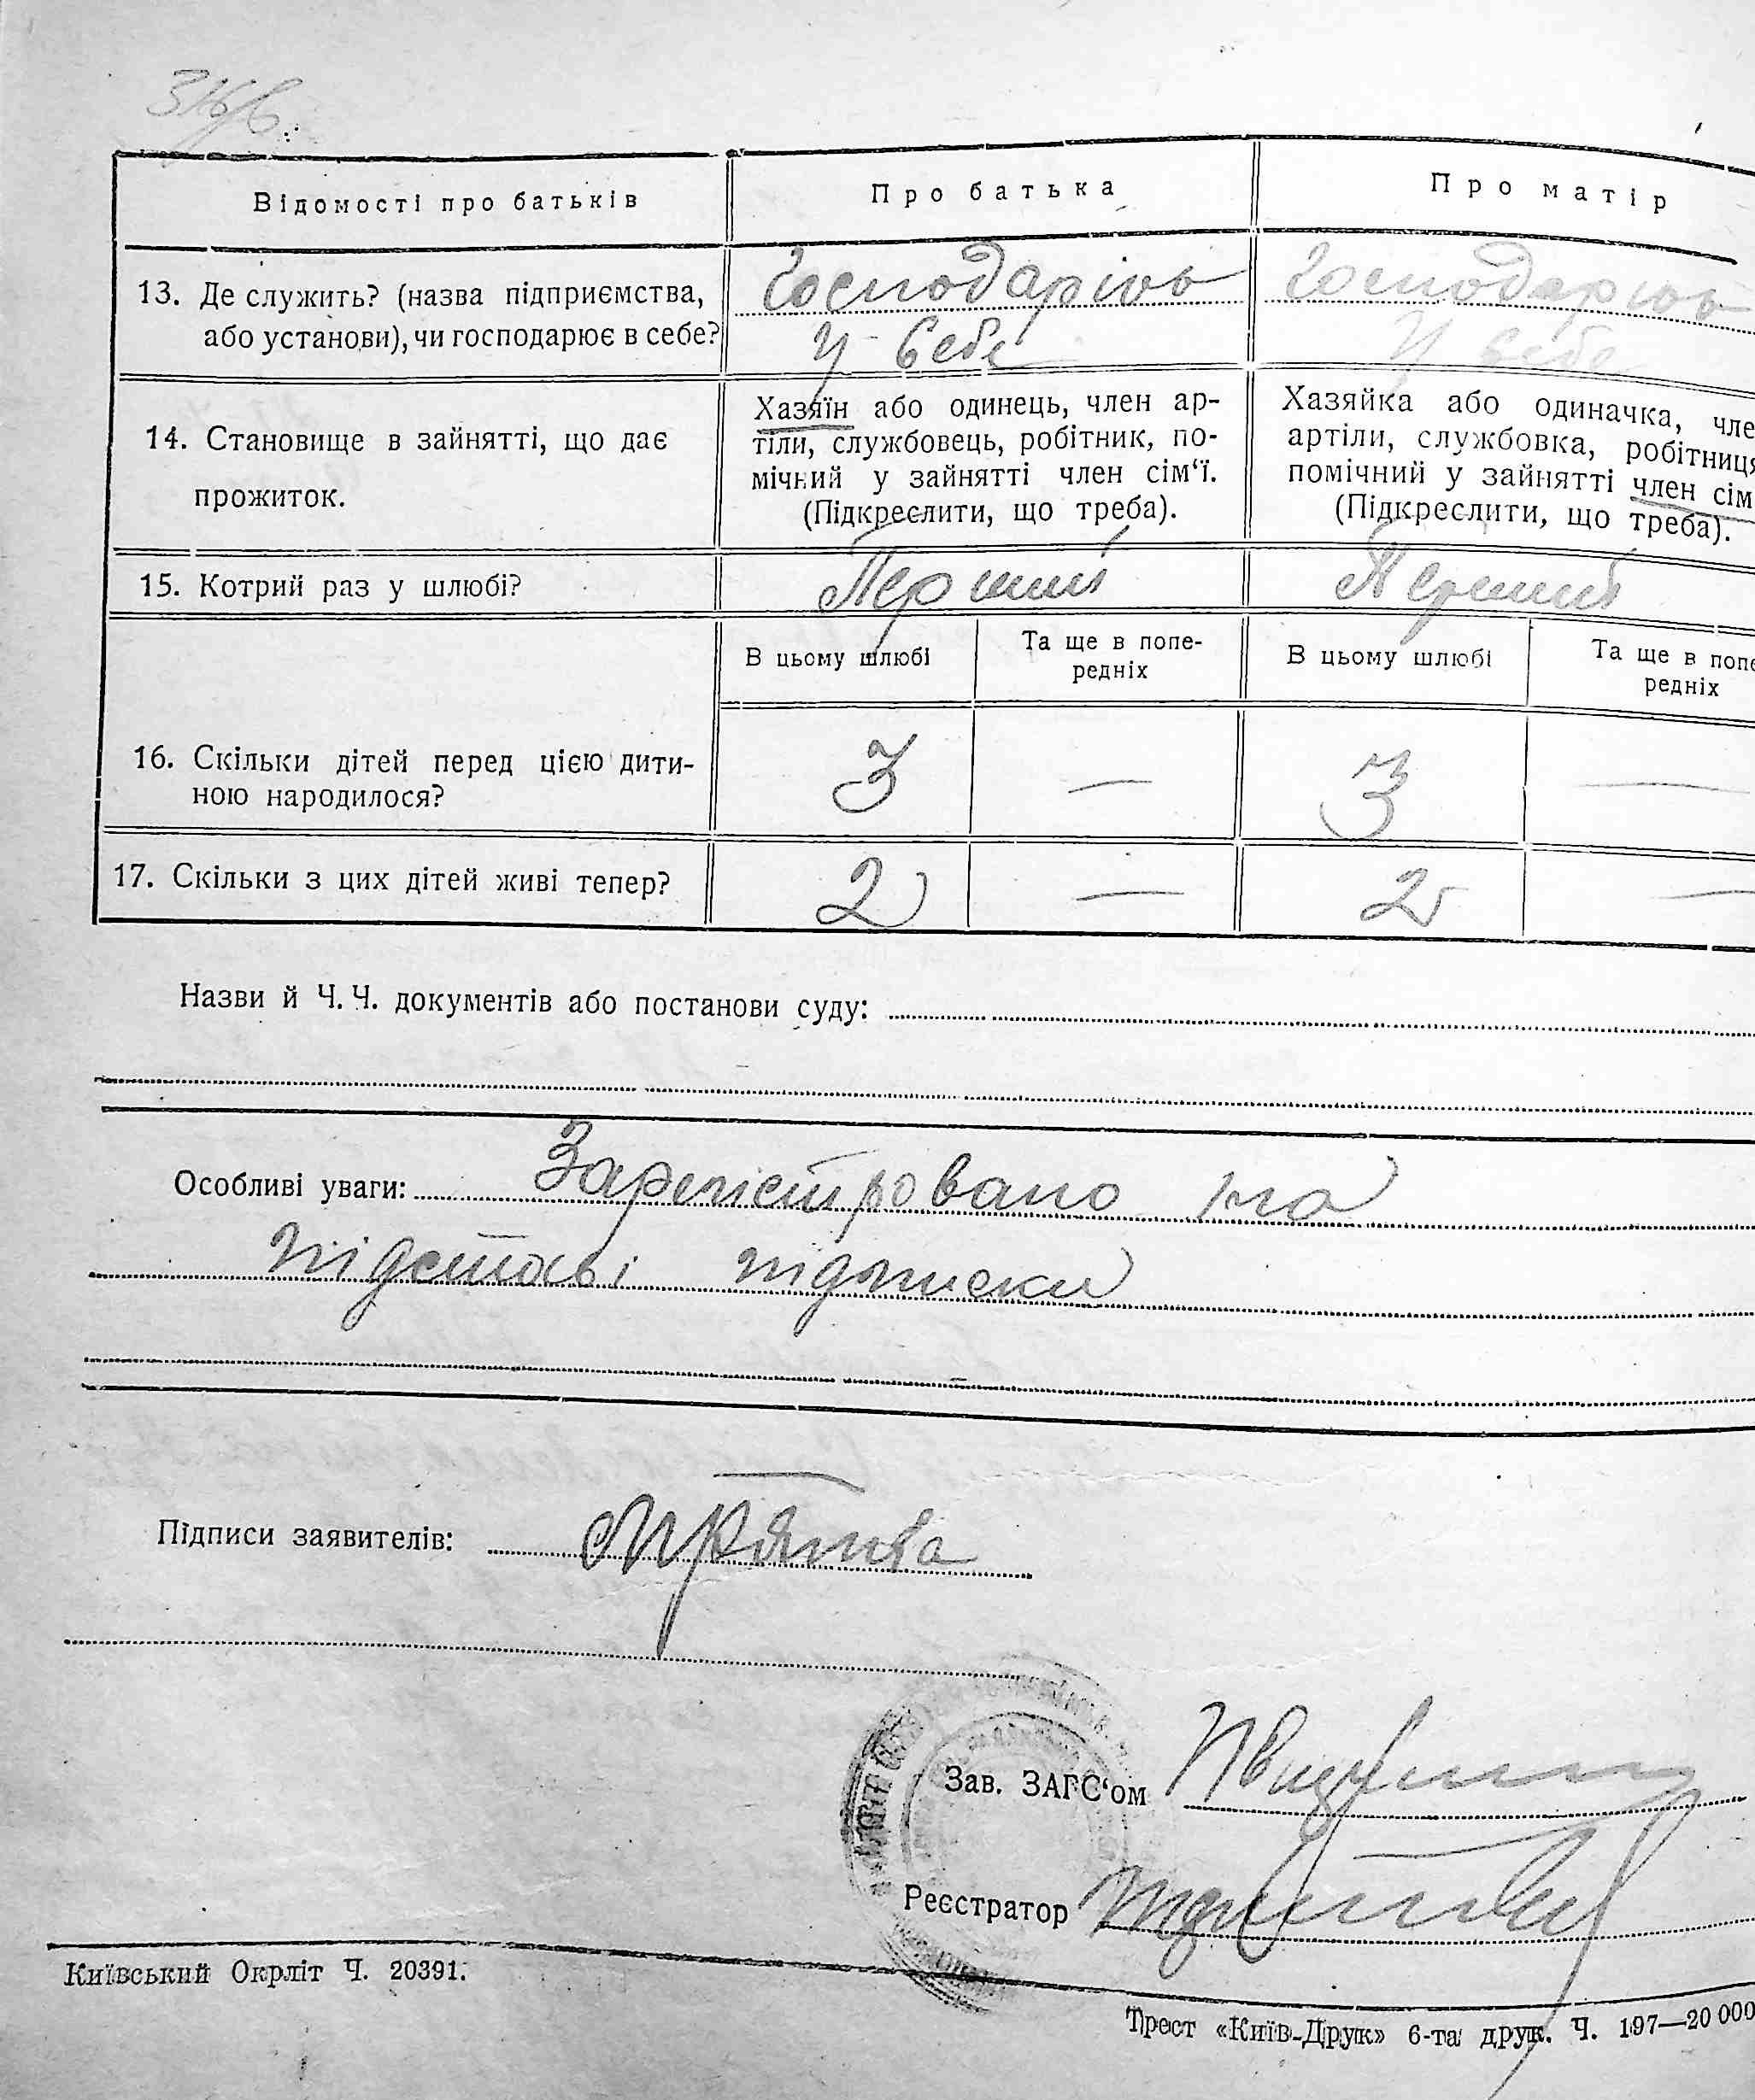 Відомості про батьків
Про батька
Про матір
13. Де служить? (назва підприємства,
або установи), чи господарює в себе?
Господарює
у себе
Господарює
у себе
14. Становище в зайнятті, що дає
прожиток.
Хазяїн або одинець, член ар-
тіли, службовець, робітник, по-
мічний у зайнятті член сім‘ї.
(Підкреслити, що треба).
Хазяйка або одиначка, чле
артіли, службовка, робітниця
помічний у зайнятті член сім
(Підкреслити, що треба).
15. Котрий раз у шлюбі?
Перший
Перший
В цьому шлюбі
Та ще в попе-
редніх
В цьому шлюбі
Та ще в попе
редніх
16. Скільки дітей перед цією дити-
ною народилося?
3
—
3
—
17. Скільки з цих дітей живі тепер?
2
—
2
—
Назви й Ч. Ч. документів або постанови суду:
Особливі уваги: Зарегістровано на
підставі підписки
Підписи заявителів:
Зав. ЗАГС‘ом
Реєстратор
Київський Окрліт Ч. 20391.
Трест «Київ-Друк» 6-та друк. Ч. 197—20 000